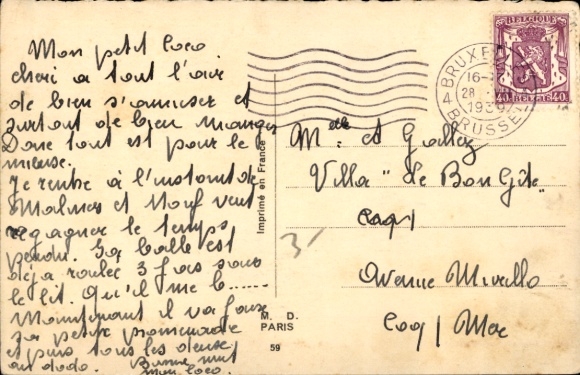 Mon petit coco
cheri a tout l'air
de bien s'amuser et
surtout de bien manger
Donc tout est pour le
mieuse.
Je rentre à l'instant de
Malines et Nouf veut
regagner le temps
perdu. Sa balle est
déja roulee 3 fois sous
le lit. Qu'il me b......
Maintenant il va faire
sa petite promenade
et puis tous les deux
au dodo. Bonne nuit
mon coco.
Imprimé en France
M. D.
PARIS
59
BRUXELLES
16-
28
1936
4 BRUSSEL 4
BELGIQUE
40 BELGIE 40
et Gallez
Villa "Le Bon Gîte"
Coq
3-
Avenue Murillo
Coq / Mer